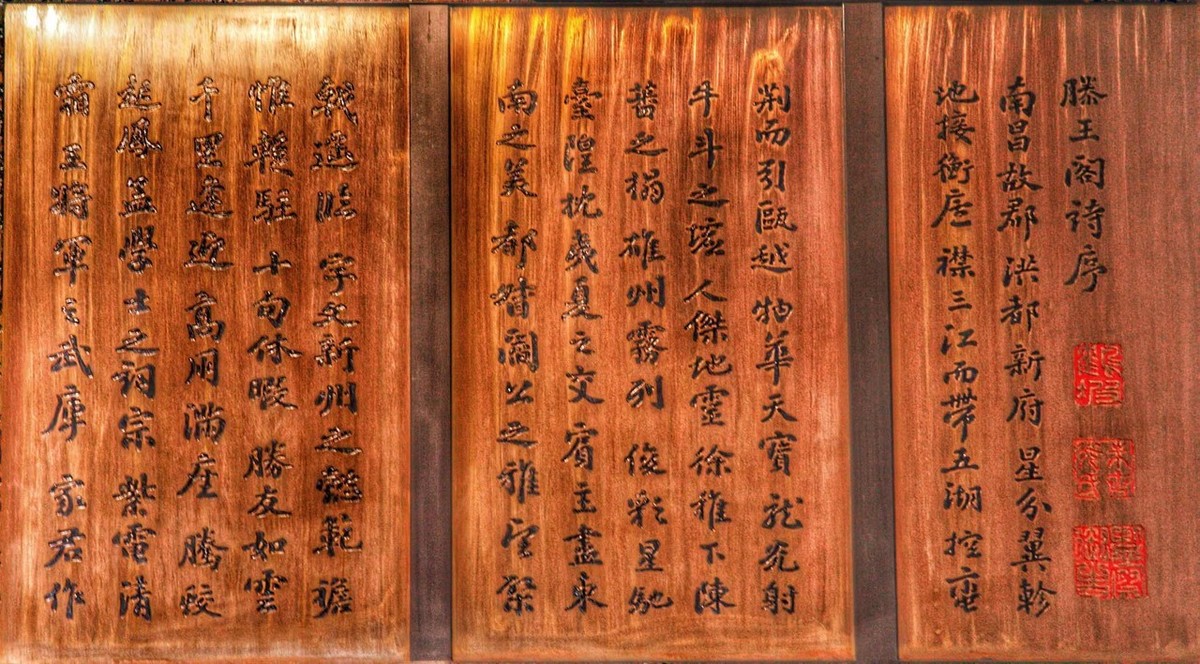 滕王閣詩序
南昌故郡洪都新府星分翼軫
地接衡庐襟三江而帶五湖控蛮
荆而引甌越物華天寶龙光射
牛斗之墟人傑地靈徐稚下陳
蕃之榻雄州霧列俊彩星馳
臺隍枕夷夏之交賓主盡東
南之美都督閻公之雅望棨
戟遥臨宇文新州之懿範襜
惟暫駐十旬休暇勝友如雲
千里逢迎高朋滿座騰蛟
起鳳孟學士之詞宗紫電清
霜王將軍之武庫家君作